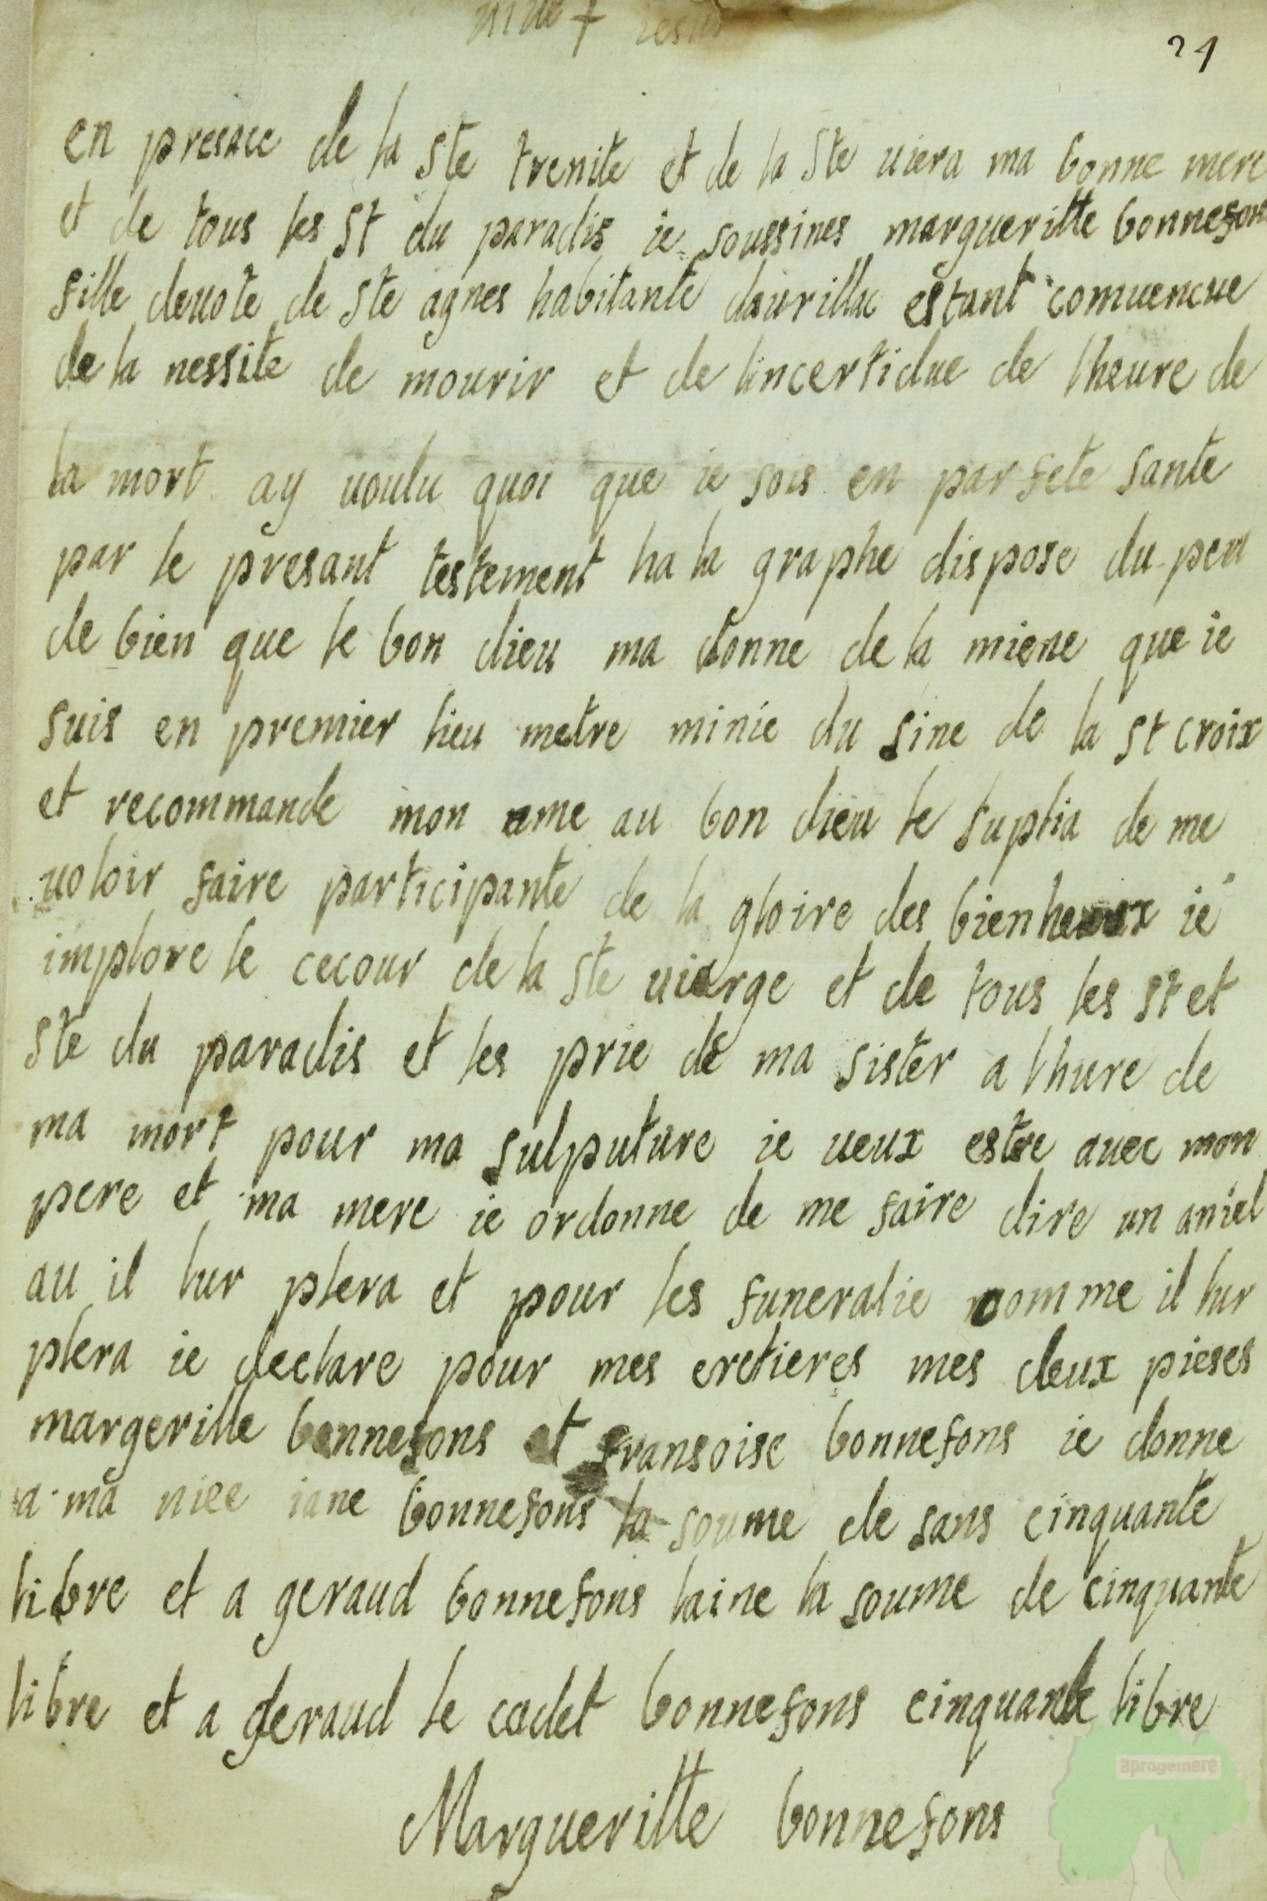 21
en presace de la ste trenite et de la ste uiera ma bonne mere
et de tous les st du paradis ie soussines margueritte bonnefons
fille deuote de ste agnes habitante daurillac estant comuencue
de la nessite de mourir et de lincertidue de lheure de
la mort ay uoulu quoi que ie sois en parfete sante
par le presant testement ha la graphe dispose du peu
de bien que le bon dieu ma donne de la miene que ie
suis en premier lieu metre minie du sine de la st croix
et recommande mon ame au bon dieu le suplia de me
uoloir faire participante de la gloire des bienheurux ie
implore le cecour de la ste uierge et de tous les st et
ste du paradis et les prie de ma sister a lhure de
ma mort pour ma sulputure ie ueux estre auec mon
pere et ma mere ie ordonne de me faire dire un aniel
au il lur plera et pour les funeralie comme il lur
plera ie declare pour mes eretieres mes deux pieses
margeritte bonnefons et fransoise bonnefons ie donne
a ma niee iane bonnefons la soume de sans cinquante
libre et a geraud bonnefons laine la soume de cinquante
libre et a geraud le cadet bonnefons cinquante libre
Margueritte bonnefons
aprogemere